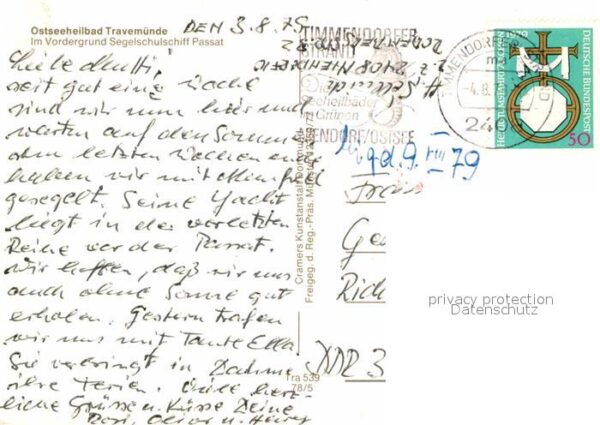 Ostseeheilbad Travemünde
Im Vordergrund Segelschulschiff Passat
DEN 3.8.79
Liebe Mutti,
seit gut eine Woche
sind wir nun hier und
warten auf den Sommer
am letzten Wochenende
haben wir mit
gesegelt. Seine Yacht
liegt in der vorletzten
Reihe vor der Passat.
Wir hoffen, daß wir uns
auch ohne Sonne gut
erholen. Gestern trafen
wir uns mit Tante Ella
Sie verbringt in Dahme
ihre Ferien. Viele herz-
liche Grüsse u. Küsse Deine
Rosi, u.
Cramers Kunstanstalt Dortmund
Freigeg. d. Reg.-Präs. Münster
Tra 539
78/5
TIMMENDORFER
STRAND
Seeheilbäder
im Grünen
NIENDORF/OSTSEE
z. Z. 2408
TIMMENDORFER STRAND
-4.8.
24
1979
DEUTSCHE BUNDESPOST
50
9. VIII 79
Frau
Ge
Rich
DDR 3
privacy protection
Datenschutz